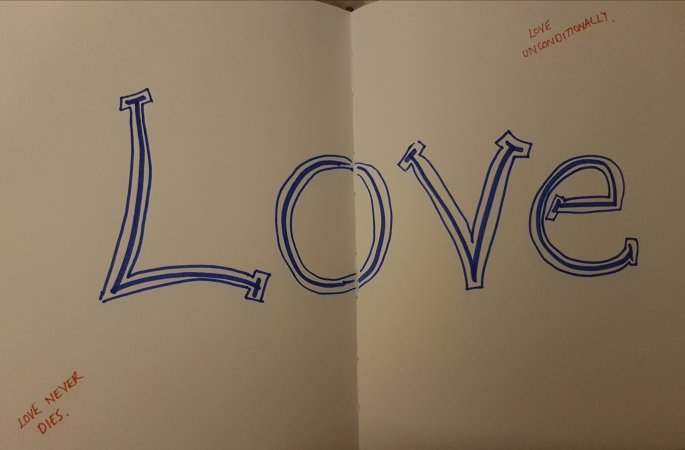 LOVE
UNCONDITIONALLY.
Love
LOVE NEVER
DIES.